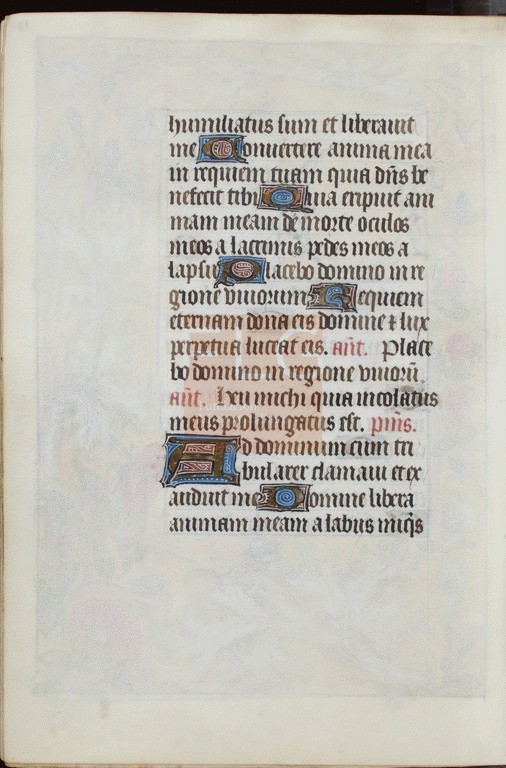 humiliatus sum et liberavit
me Convertere anima mea
in requiem tuam quia dñs be
nefecit tibi Quia eripuit ani
mam meam de morte oculos
meos a lacrimis pedes meos a
lapsu Placebo domino in re
gione vivorum Requiem
eternam dona eis domine ⁊ lux
perpetua luceat eis. añt. Place
bo domino in regione vivorū.
añt. Heu michi quia incolatus
meus prolungatus est. pm̃s.
Ad dominum cum tri
bularer clamavi et ex
audivit me Domine libera
animam meam a labijs iniq̃s